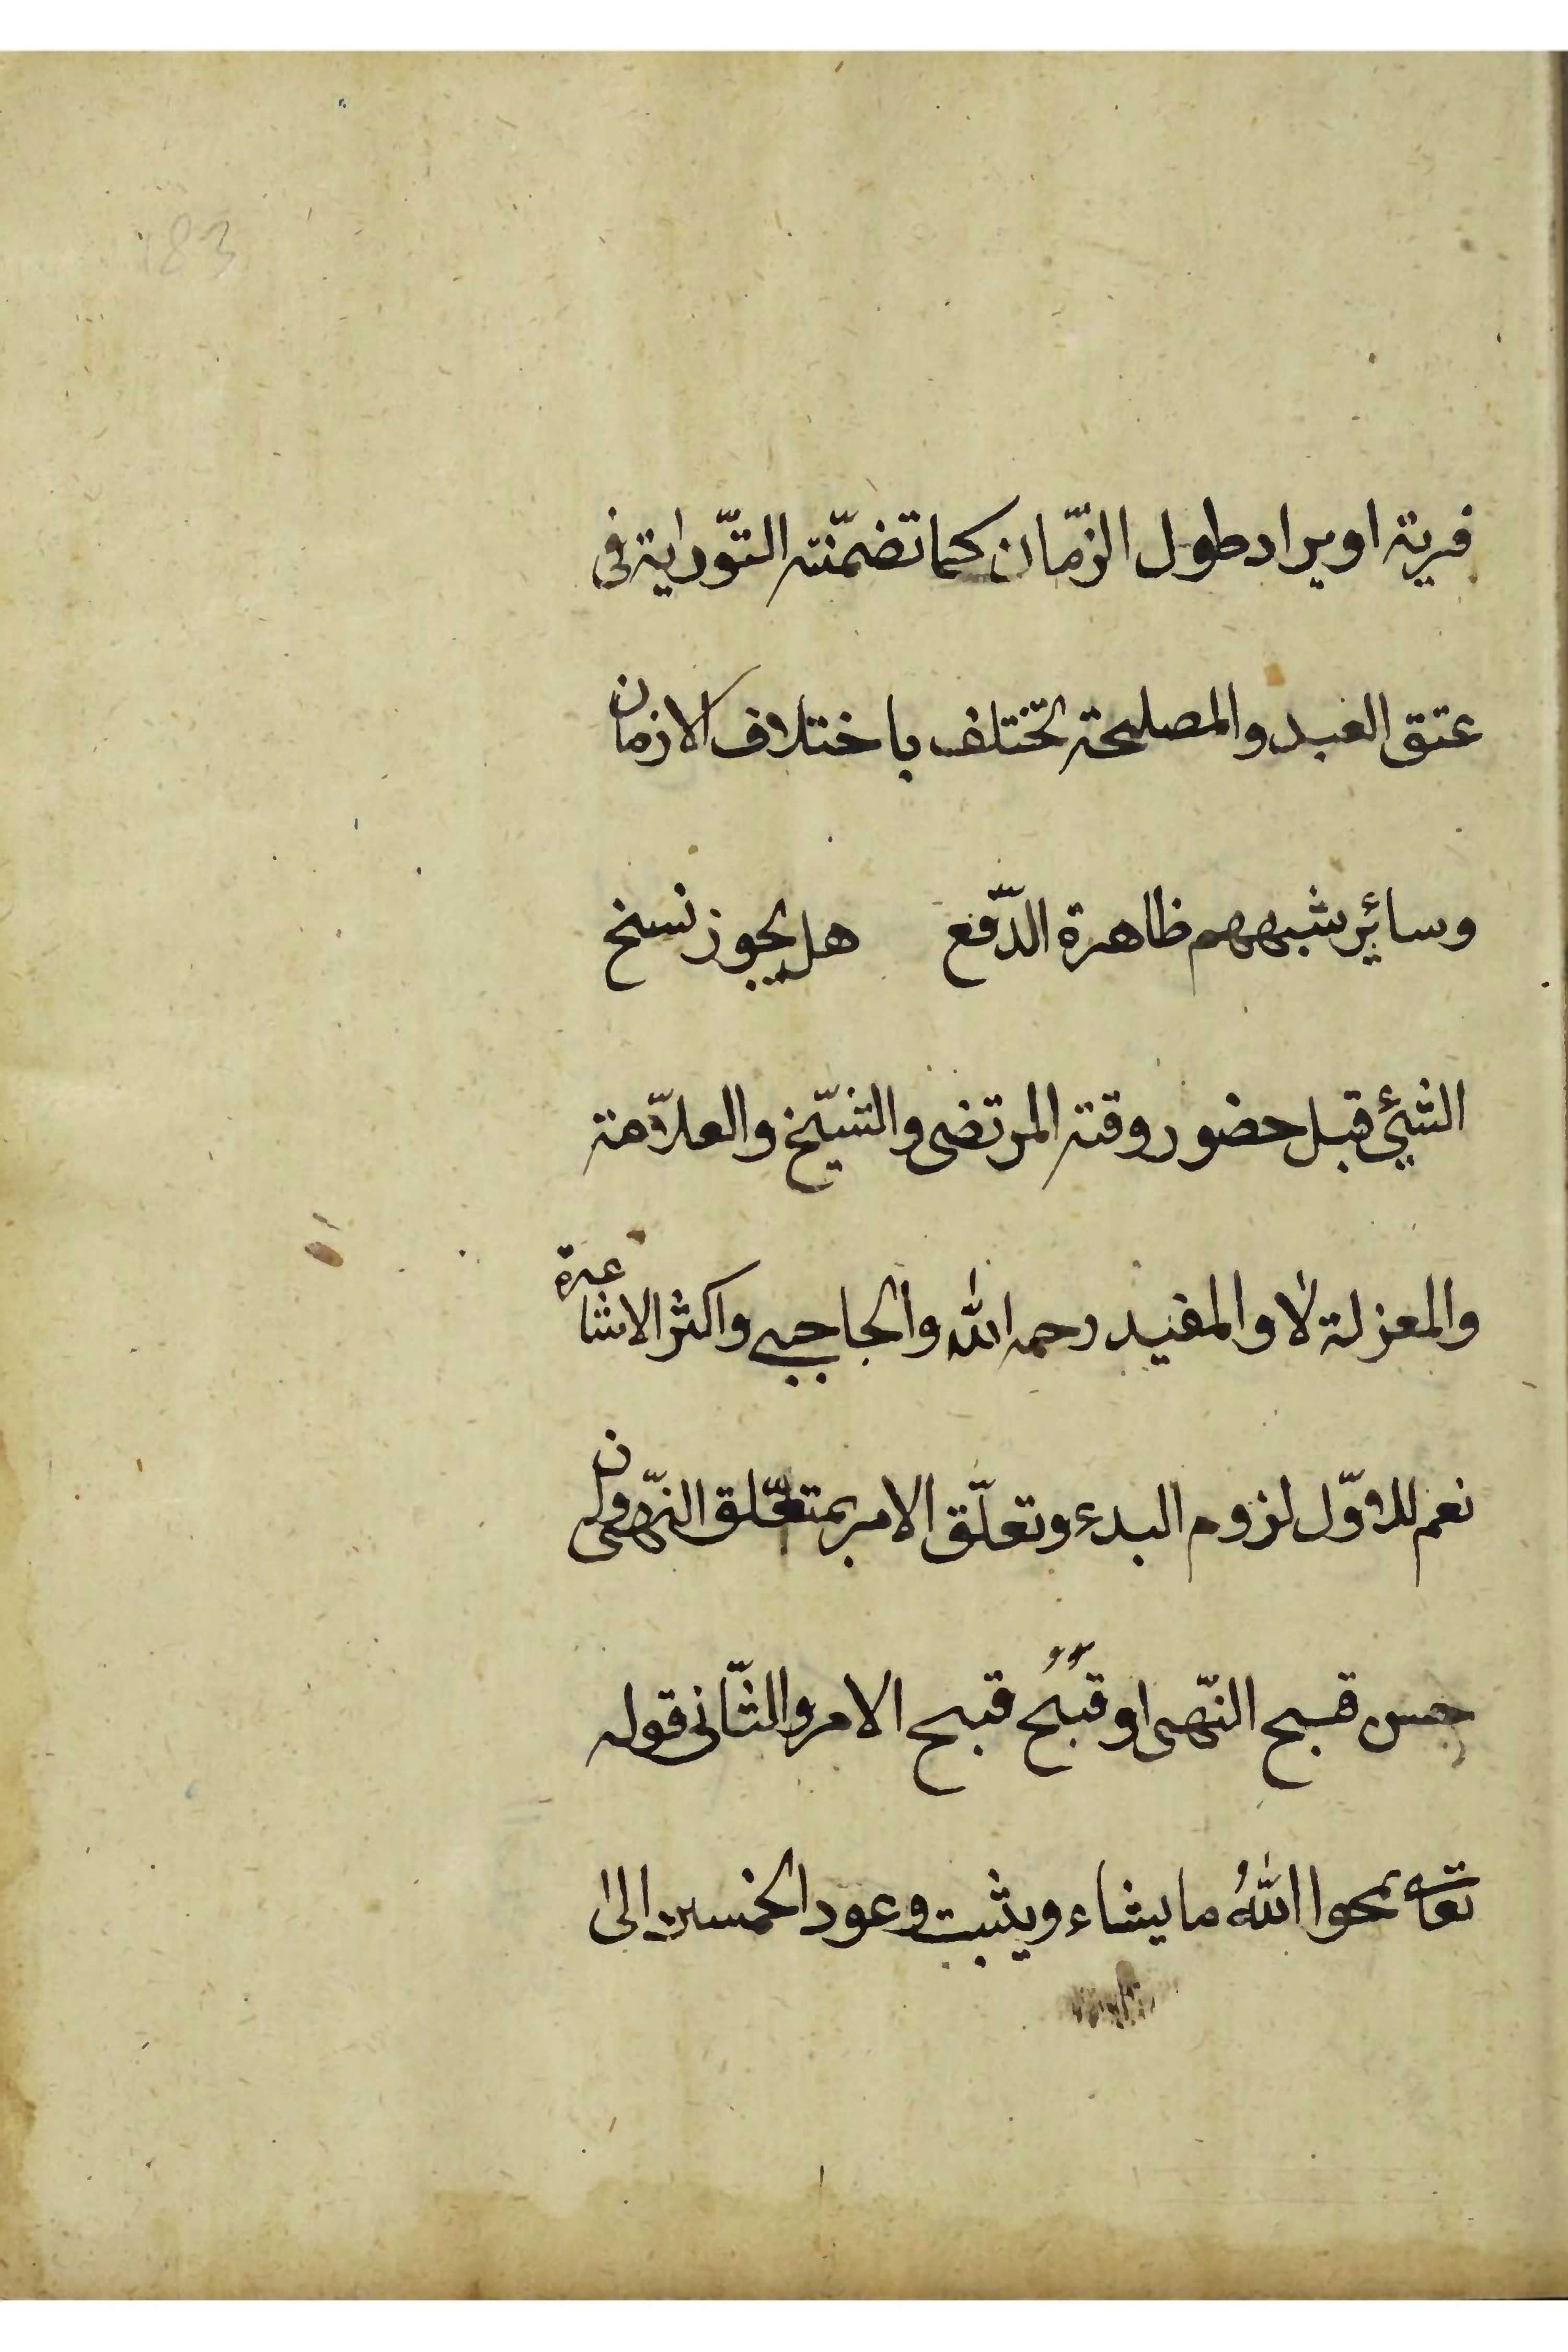 183
فرية او يراد طول الزّمان كما تضمّنته التّوراية فى
عتق العبد والمصلحة تختلف باختلاف الازمان
وسائر شبههم ظاهرة الدّفع هل يجوز نسخ
الشئ قبل حضور وقته المرتضى والشّيخ والعلاّمة
والمعزلة لا والمفيد رحمه الله والحاجبى واكثر الاشاعرة
نعم للاوّل لزوم البدء وتعلّق الامر بمتعلّق النّهى وان
حسن قبح النّهى او قبُح قبح الامر والثّانى قوله
تعا يمحوا اللهُ ما يشاء ويثبت وعود الخمسين الى